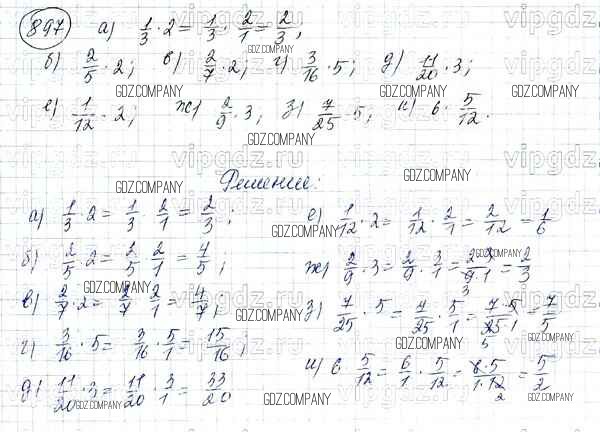 897 а) 1/3 · 2 = 1/3 · 2/1 = 2/3;
б) 2/5 · 2; в) 2/7 · 2; г) 3/16 · 5; д) 11/20 · 3;
е) 1/12 · 2; ж) 2/9 · 3; з) 7/25 · 5; и) 6 · 5/12.
Решение:
а) 1/3 · 2 = 1/3 · 2/1 = 2/3;
б) 2/5 · 2 = 2/5 · 2/1 = 4/5;
в) 2/7 · 2 = 2/7 · 2/1 = 4/7;
г) 3/16 · 5 = 3/16 · 5/1 = 15/16;
д) 11/20 · 3 = 11/20 · 3/1 = 33/20
е) 1/12 · 2 = 1/12 · 2/1 = 2/12 = 1/6
ж) 2/9 · 3 = 2/9 · 3/1 = 2·3/9·1 = 2/3
3
з) 7/25 · 5 = 7/25 · 5/1 = 7·5/25·1 = 7/5
5
и) 6 · 5/12 = 6/1 · 5/12 = 6·5/1·12 = 5/2
2
vipgdz.ru
GDZ.COMPANY